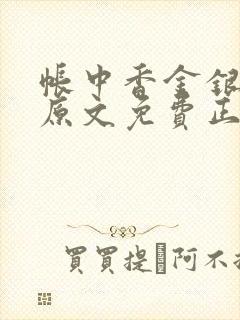 帳中香金銀
原文免費正
買買提·阿不拉